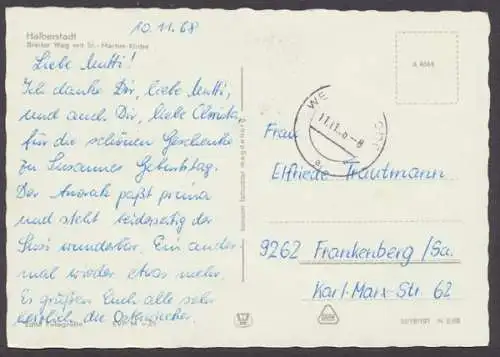 10.11.68
Halberstadt
Breiter Weg mit St.-Martini-Kirche
Liebe Mutti!
Ich danke Dir, liebe Mutti,
und auch Dir, liebe Christa,
für die schönen Geschenke
zu Susannes Geburtstag.
Der Anorak paßt prima
und steht beiderseitig der
Susi wunderbar. Ein ander-
mal wieder etwas mehr.
Es grüßen Euch alle sehr
herzlich die
Echte Fotografie
A 6044
WE
11.11.6 -8
Frau
Elfriede Trautmann
9262 Frankenberg/Sa.
Karl-Marx-Str. 62